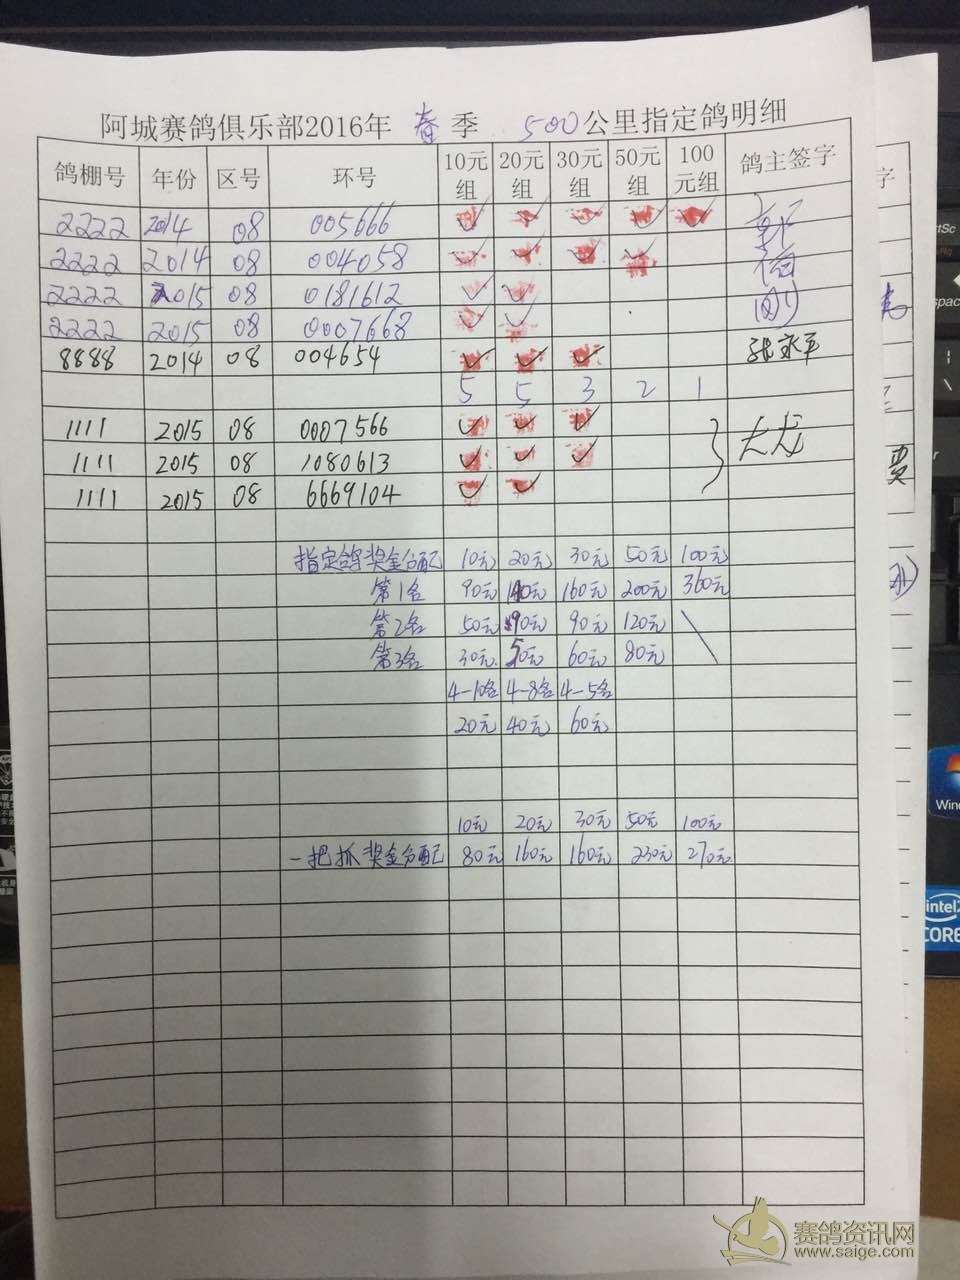 阿城赛鸽俱乐部2016年 春 季 500公里指定鸽明细
鸽棚号 年份 区号 环号 10元组 20元组 30元组 50元组 100元组 鸽主签字
2222 2014 08 005666 ✓ ✓ ✓ ✓ ✓
2222 2014 08 004058 ✓ ✓ ✓ ✓
2222 2015 08 0181612 ✓ ✓
2222 2015 08 0007668 ✓ ✓
8888 2014 08 004654 ✓ ✓ ✓ 张永平
5 5 3 2 1
1111 2015 08 0007566 ✓ ✓ ✓ 大龙
1111 2015 08 1080613 ✓ ✓ ✓
1111 2015 08 6669104 ✓ ✓
指定鸽奖金分配 10元 20元 30元 50元 100元
第1名 90元 140元 160元 200元 360元
第2名 50元 90元 90元 120元
第3名 30元 50元 60元 80元
4-10名 4-8名 4-5名
20元 40元 60元
10元 20元 30元 50元 100元
一把抓奖金分配 80元 160元 160元 230元 270元
字
费
intel
CORE
赛鸽资讯网
www.saige.com